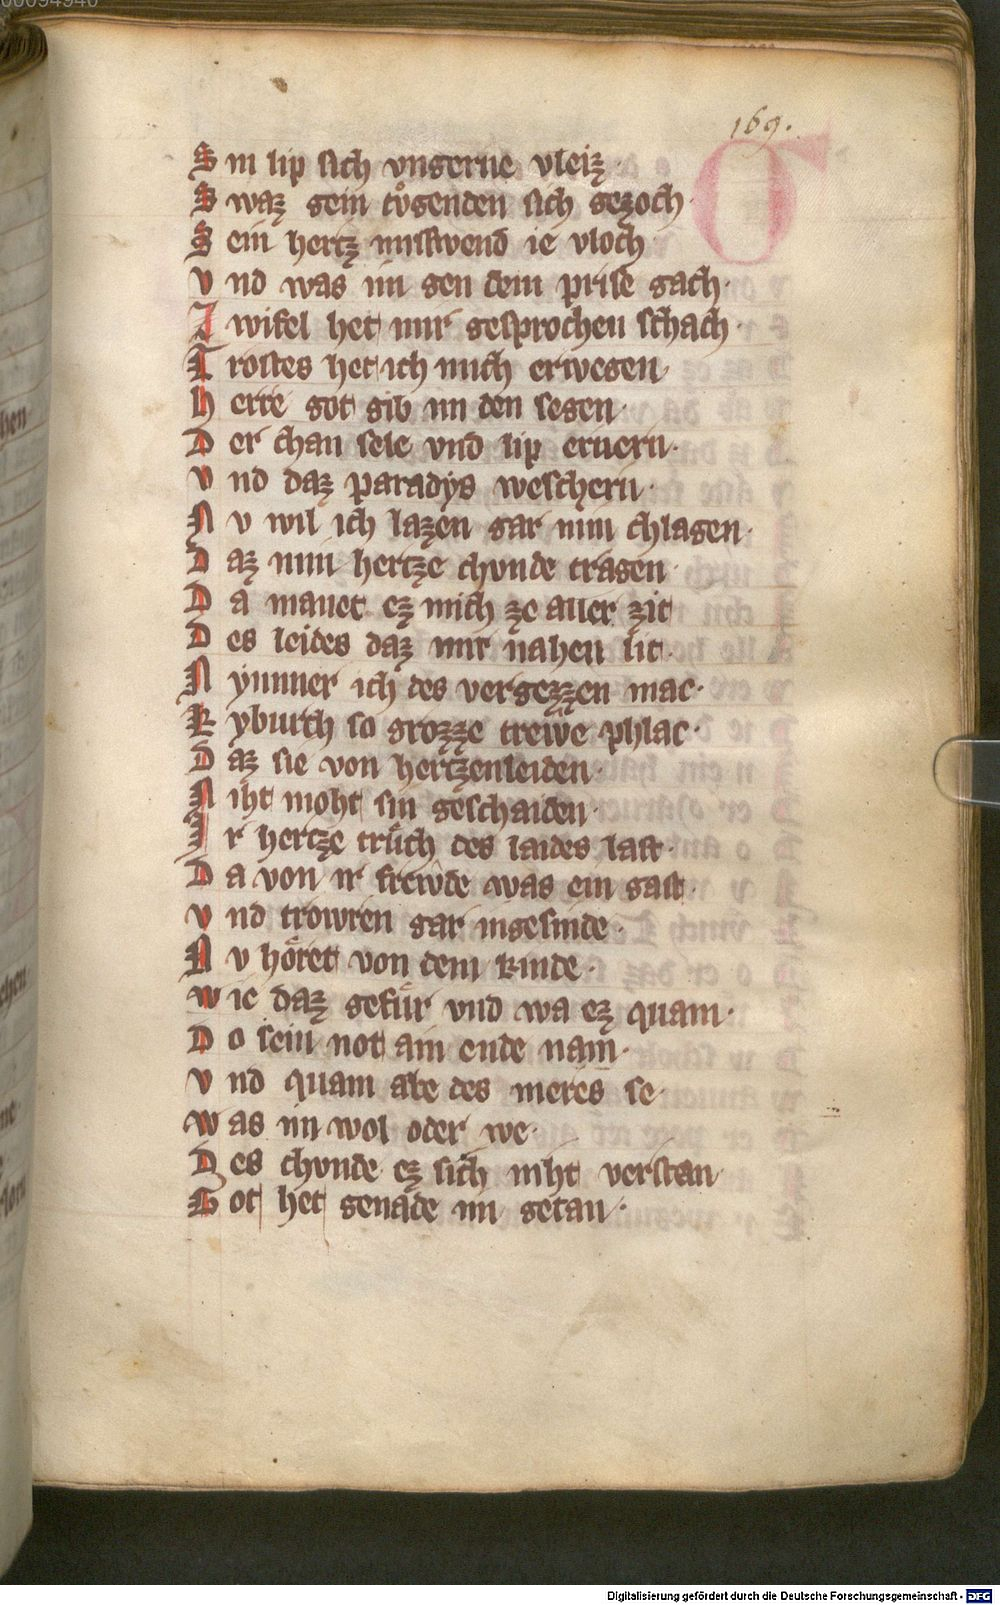 169.
Sin lip sich vngerne vleiz
Swaz gein tvͦgenden sich gezoch·
Sein hertz missewend ie vloch·
vnd was im gen dem prise gach·
Zwifel het mir gesprochen schach·
Trostes het ich mich erwegen·
herre got gib im den segen·
Der chan sele vnd lip ernern·
vnd daz paradys weschern·
Nv wil ich lazen gar min chlagen·
Daz min hertze chvnde tragen·
Da manet ez mich ze aller zit
Des leides daz mir nahen lit·
Nymmer ich des vergezzen mac·
Kyburch so grozze trewe phlac·
Daz sie von hertzenleiden·
Niht moht sin geschaiden·
Ir hertze trůch des laides last·
Da von ir frewde was ein gast·
vnd trowren gar ingesinde·
Nv hoͤret von dem kinde·
wie daz gefůr vnd wa ez quam·
Do sein not ain ende nam·
vnd quam abe des meres se·
was im wol oder we·
Des chvnde ez sich niht verstan·
Got het genade im getan·
Digitalisierung gefördert durch die Deutsche Forschungsgemeinschaft - DFG